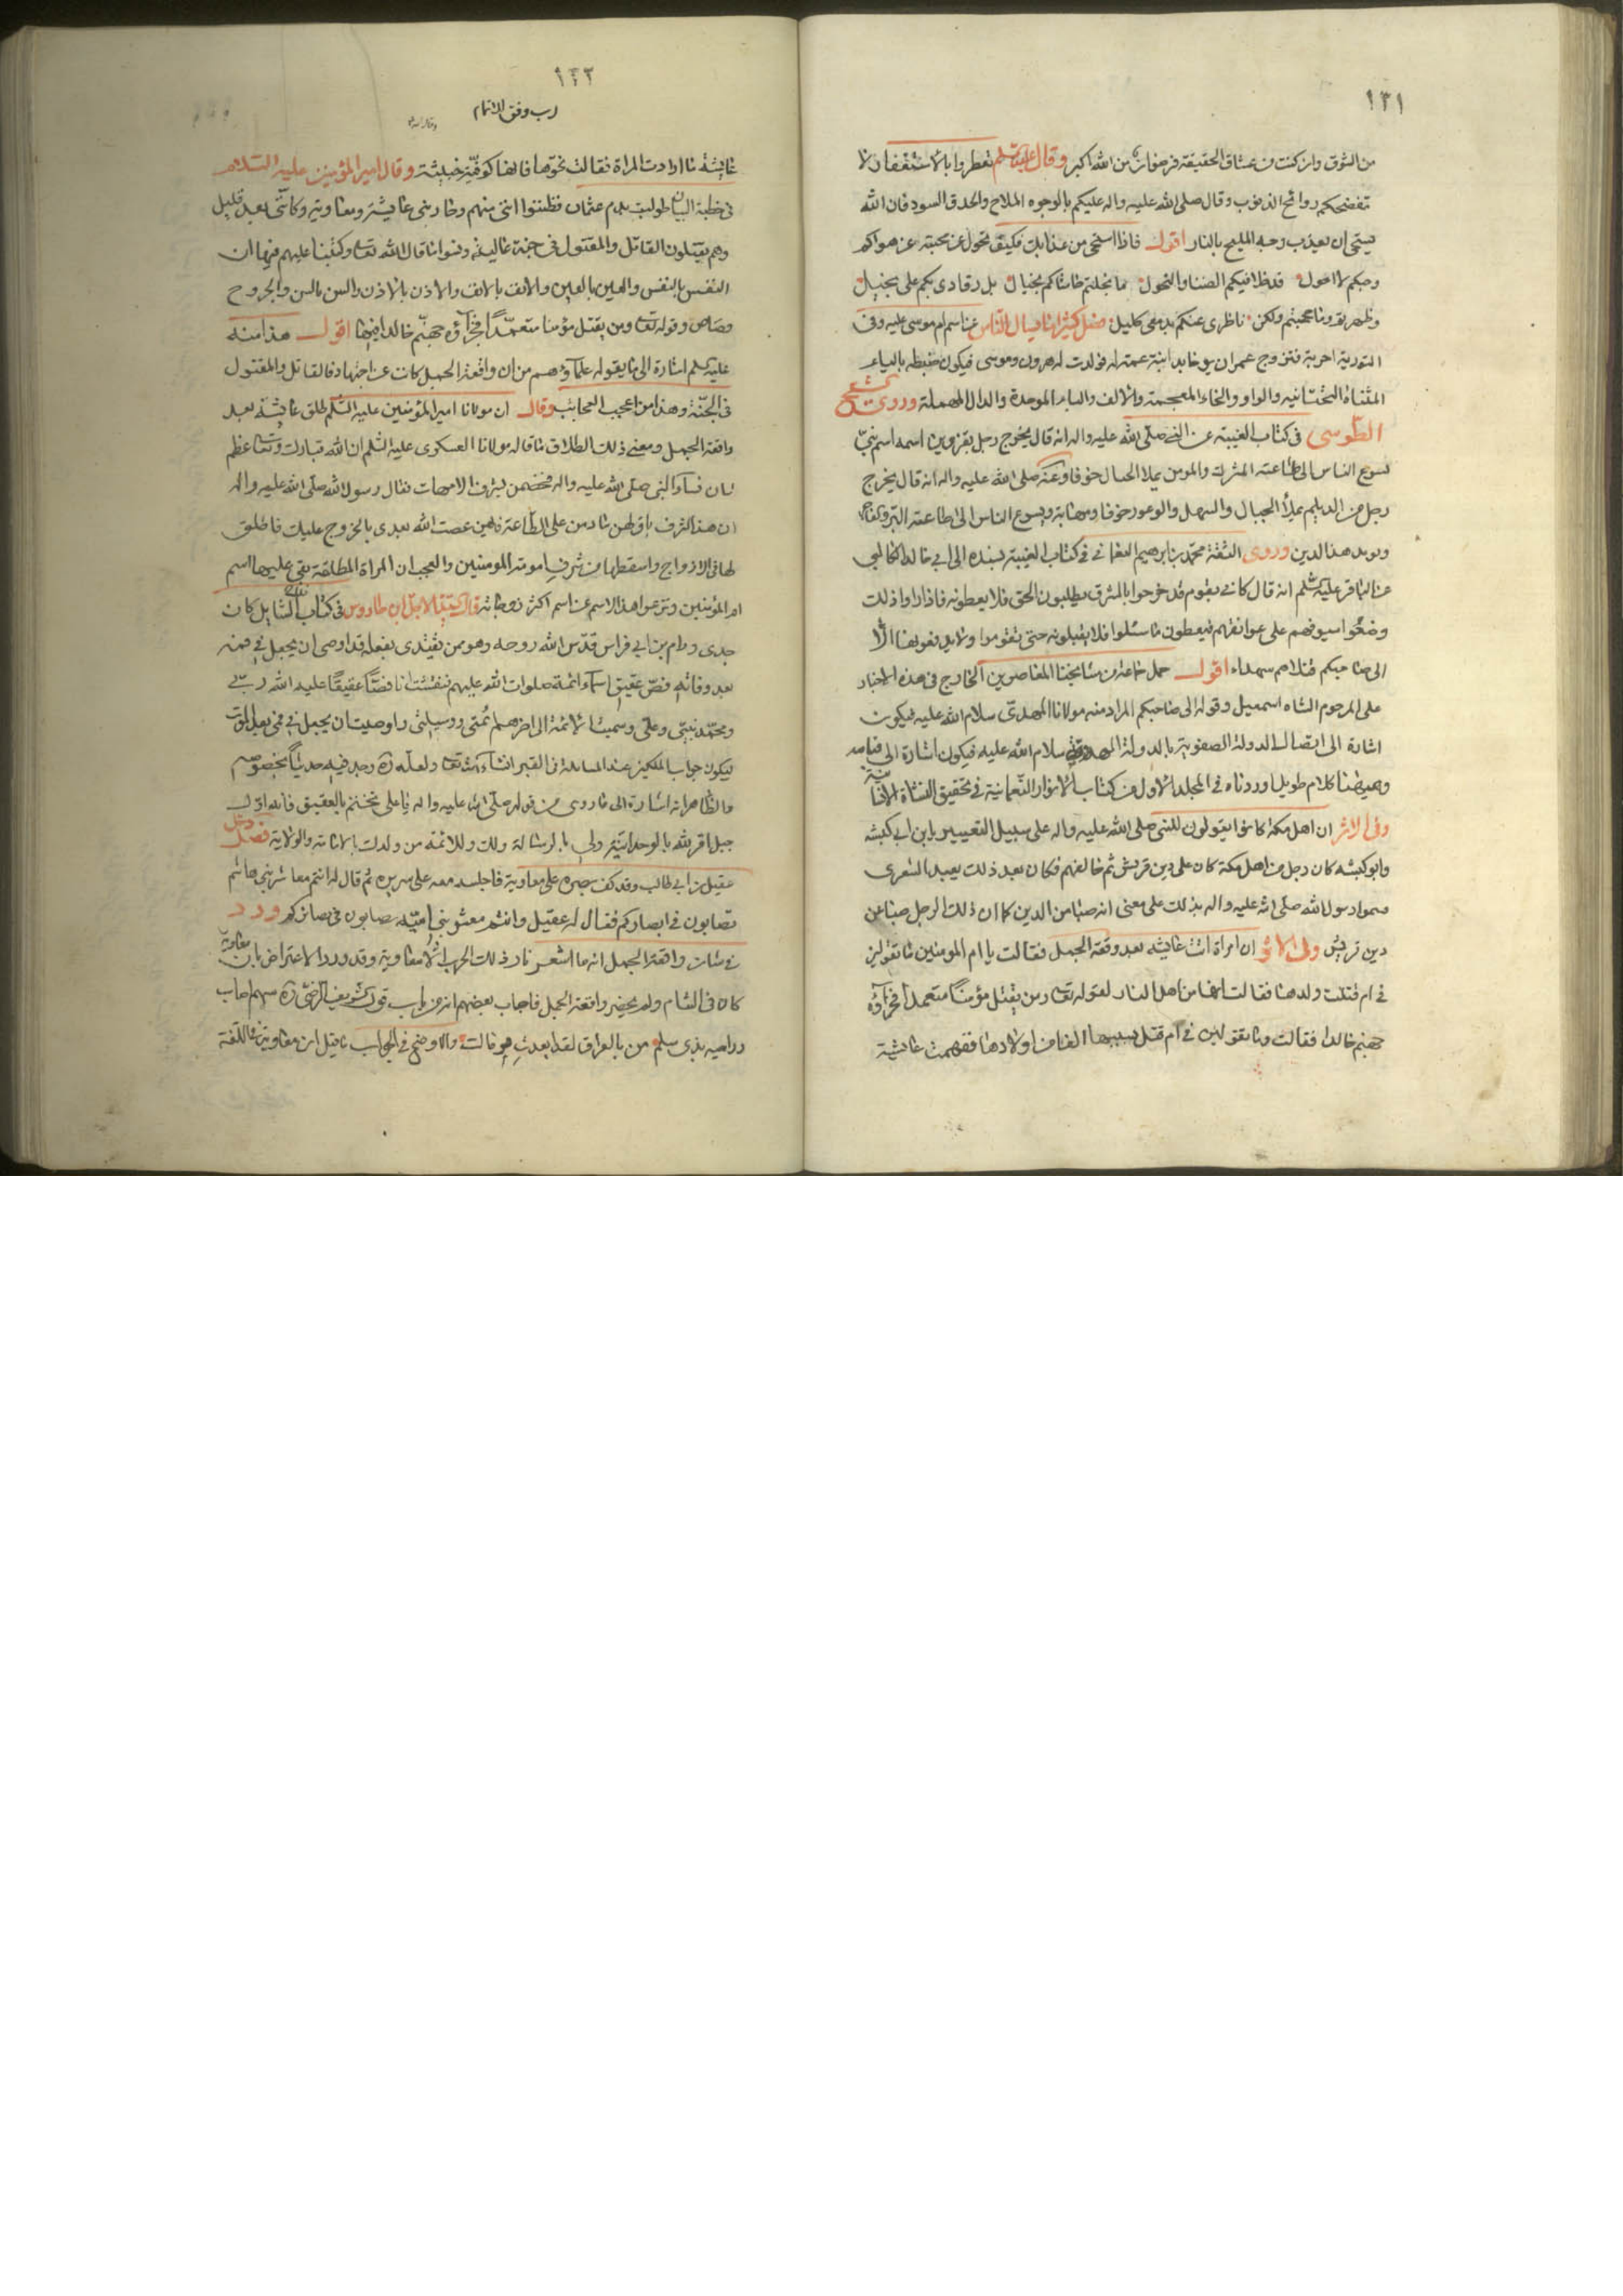 ١٣١
من الشوق وان كنت من عشاق الحقيقة فرضوان من الله اكبر وقال عليه السلم تعطروا بالاستغفار لا
تفضحكم روائح الذنوب وقال صلى الله عليه واله عليكم بالوجوه الملاح والحدق السود فان الله
يستحى ان يعذب وجه المليح بالنار اقول فاذا استحى من عذابك فكيف تحول عن محبته عن هواكم
وحبكم لا احول قد ظل فيكم الضنا والنحول ما بخلتم حاشاكم بخيال بل رقادى بكم على بخيل
وظهر بقر وما حجبتم ولكن ناظرى عنكم بدمعى كليل فصل كثيرا ما يسال الناس عن اسم ام موسى عليه وفى
التورية احربة فتزوج عمران يوخابد ابنة عمته له فولدت له هرون وموسى فيكون ضبطه بالياء
المثناة التحتانيه والواو والخاء المعجمة والالف والباء الموحدة والدال المهملة وروى الشيخ
الطوسى فى كتاب الغيبة عن النبى صلى الله عليه واله انه قال يخرج رجل بقزوين اسمه اسم نبى
يسرع الناس الى طاعته المشرك والمومن يملا الجبال خوفا وعنه صلى الله عليه واله انه قال يخرج
رجل من الديلم يملأ الجبال والسهل والوعور خوفا ومهابة ويسرع الناس الى طاعته البر والفاجر
ويويد هذا الدين وروى الثقة محمد بن ابرهيم النعمانى فى كتاب الغيبة بسنده الى ابى خالد الكابلى
عن الباقر عليه السلم انه قال كانى بقوم قد خرجوا بالمشرق يطلبون الحق فلا يعطونه فاذا راوا ذلك
وضعوا سيوفهم على عواتقهم فيعطون ما سئلوا فلا يقبلونه حتى يقوموا ولا يدفعونها الا
الى صاحبكم قتلاهم سهداء اقول حمل جماعة من مشايخنا المعاصرين الخارج فى هذه الاخبار
على المرحوم الشاه اسمعيل وقوله الى صاحبكم المراد منه مولانا المهدى سلام الله عليه فيكون
اشارة الى اتصال الدولة الصفوية بالدولة المهدوية سلام الله عليه فيكون اشارة الى قيامه
وهيهنا كلام طويل اوردناه فى المجلد الاول من كتاب الانوار النعمانية فى تحقيق النشاة الانسانية
وفى الاثر ان اهل مكة كانوا يقولون للنبى صلى الله عليه واله على سبيل التعيير يا بن ابى كبشه
وابو كبشه كان رجل من اهل مكة كان على دين قريش ثم خالفهم فكان بعد ذلك يعبد الشعرى
فسموا رسول الله صلى الله عليه واله بذلك على معنى انه صبا من الدين كما ان ذلك الرجل صبا عن
دين قريش وفى الاثر ان امراة اتت عائيشه بعد وقعة الجمل فقالت يا ام المومنين ما تقولين
فى ام قتلت ولدها فقالت انها من اهل النار لقوله تعالى ومن يقتل مؤمنا متعمدا فجزاؤه
جهنم خالدا فقالت وما تقولين فى ام قتل بسببها الفا من اولادها ففهمت عائشة
١٣٢
رب وفق للاتمام
عايشة ما ارادت المراة فقالت نحوها فانها كوفية خبيثة وقال امير المؤمنين عليه السلام
فى خطبة البيان طولبت بدم عثمان وظننوا انى منهم وحاربنى عايشة ومعاوية وكانى بعد قليل
وهم يقتلون القاتل والمقتول فى جنة عاليه ونسوا ما قال الله تعالى وكتبنا عليهم فيها ان
النفس بالنفس والعين بالعين والانف بالانف والاذن بالاذن والسن بالسن والجروح
قصاص وقوله تعالى ومن يقتل مؤمنا متعمدا فجزآؤه جهنم خالدا فيها اقول هذا منه
عليه السلم اشارة الى ما يقوله علمآؤهم من ان واقعة الجمل كانت عن اجتهاد فالقاتل والمقتول
فى الجنة وهذا من اعجب العجائب وقال ان مولانا امير المؤمنين عليه السلم طلق عائشة بعد
واقعة الجمل ومعنى ذلك الطلاق ما قاله مولانا العسكرى عليه السلم ان الله تبارك وتعالى عظم
شان نسآء النبى صلى الله عليه واله فخصهن بشرف الامهات فقال رسول الله صلى الله عليه واله
ان هذا الشرف باق لهن ما دمن على الطاعة فايهن عصت الله بعدى بالخروج عليك فاطلق
لها فى الازواج واسقطها من شرف امومة المومنين والعجب ان المراة المطلقة بقى عليها اسم
ام المؤمنين ونزعوا هذا الاسم عن اسم اكثر زوجاته قال السيد الاجل ابن طاووس فى كتاب كان
جدى ورام بن ابى فراس قدس الله روحه وهو ممن يقتدى بفعله قد اوصى ان يجعل فى فمه
بعد وفاته فص عقيق اسمآء ائمة صلوات الله عليهم فنقشت انا فصا عقيقا عليه الله ربى
ومحمد نبيى وعلى وسميت الائمة الى اخرهم ائمتى ووسيلتى واوصيت ان يجعل فى فمى بعد الموت
ليكون جواب الملكين عند المسايلة فى القبر انشآء الله تعالى ولعله ره وجد فيه حديثا بخصوصه
والظاهر انه اشارة الى ما روى من قوله صلى الله عليه واله يا على تختم بالعقيق فانه اول
جبل اقر لله بالوحدانية ولى بالرسالة ولك وللائمة من ولدك بالامامة والولاية فصل دخل
عقيل بن ابى طالب وقد كف بصره على معاوية فاجلسه معه على سريره ثم قال له انتم معاشر بنى هاشم
تصابون فى ابصاركم فقال له عقيل وانتم معشر بنى امية تصابون فى بصائركم ورد
فى شان واقعة الجمل انه ما اشعر نار ذلك الحرب الا معاوية وقد ورد الاعتراض بان معاوية
كان فى الشام ولم يحضر واقعة الجمل فاجاب بعضهم انه من باب قول الشريف الرضى ره سهم اصاب
وراميه بذى سلم من بالعراق لقد ابعدت والاوضح فى الجواب ما قيل ان معاوية فى اللغة